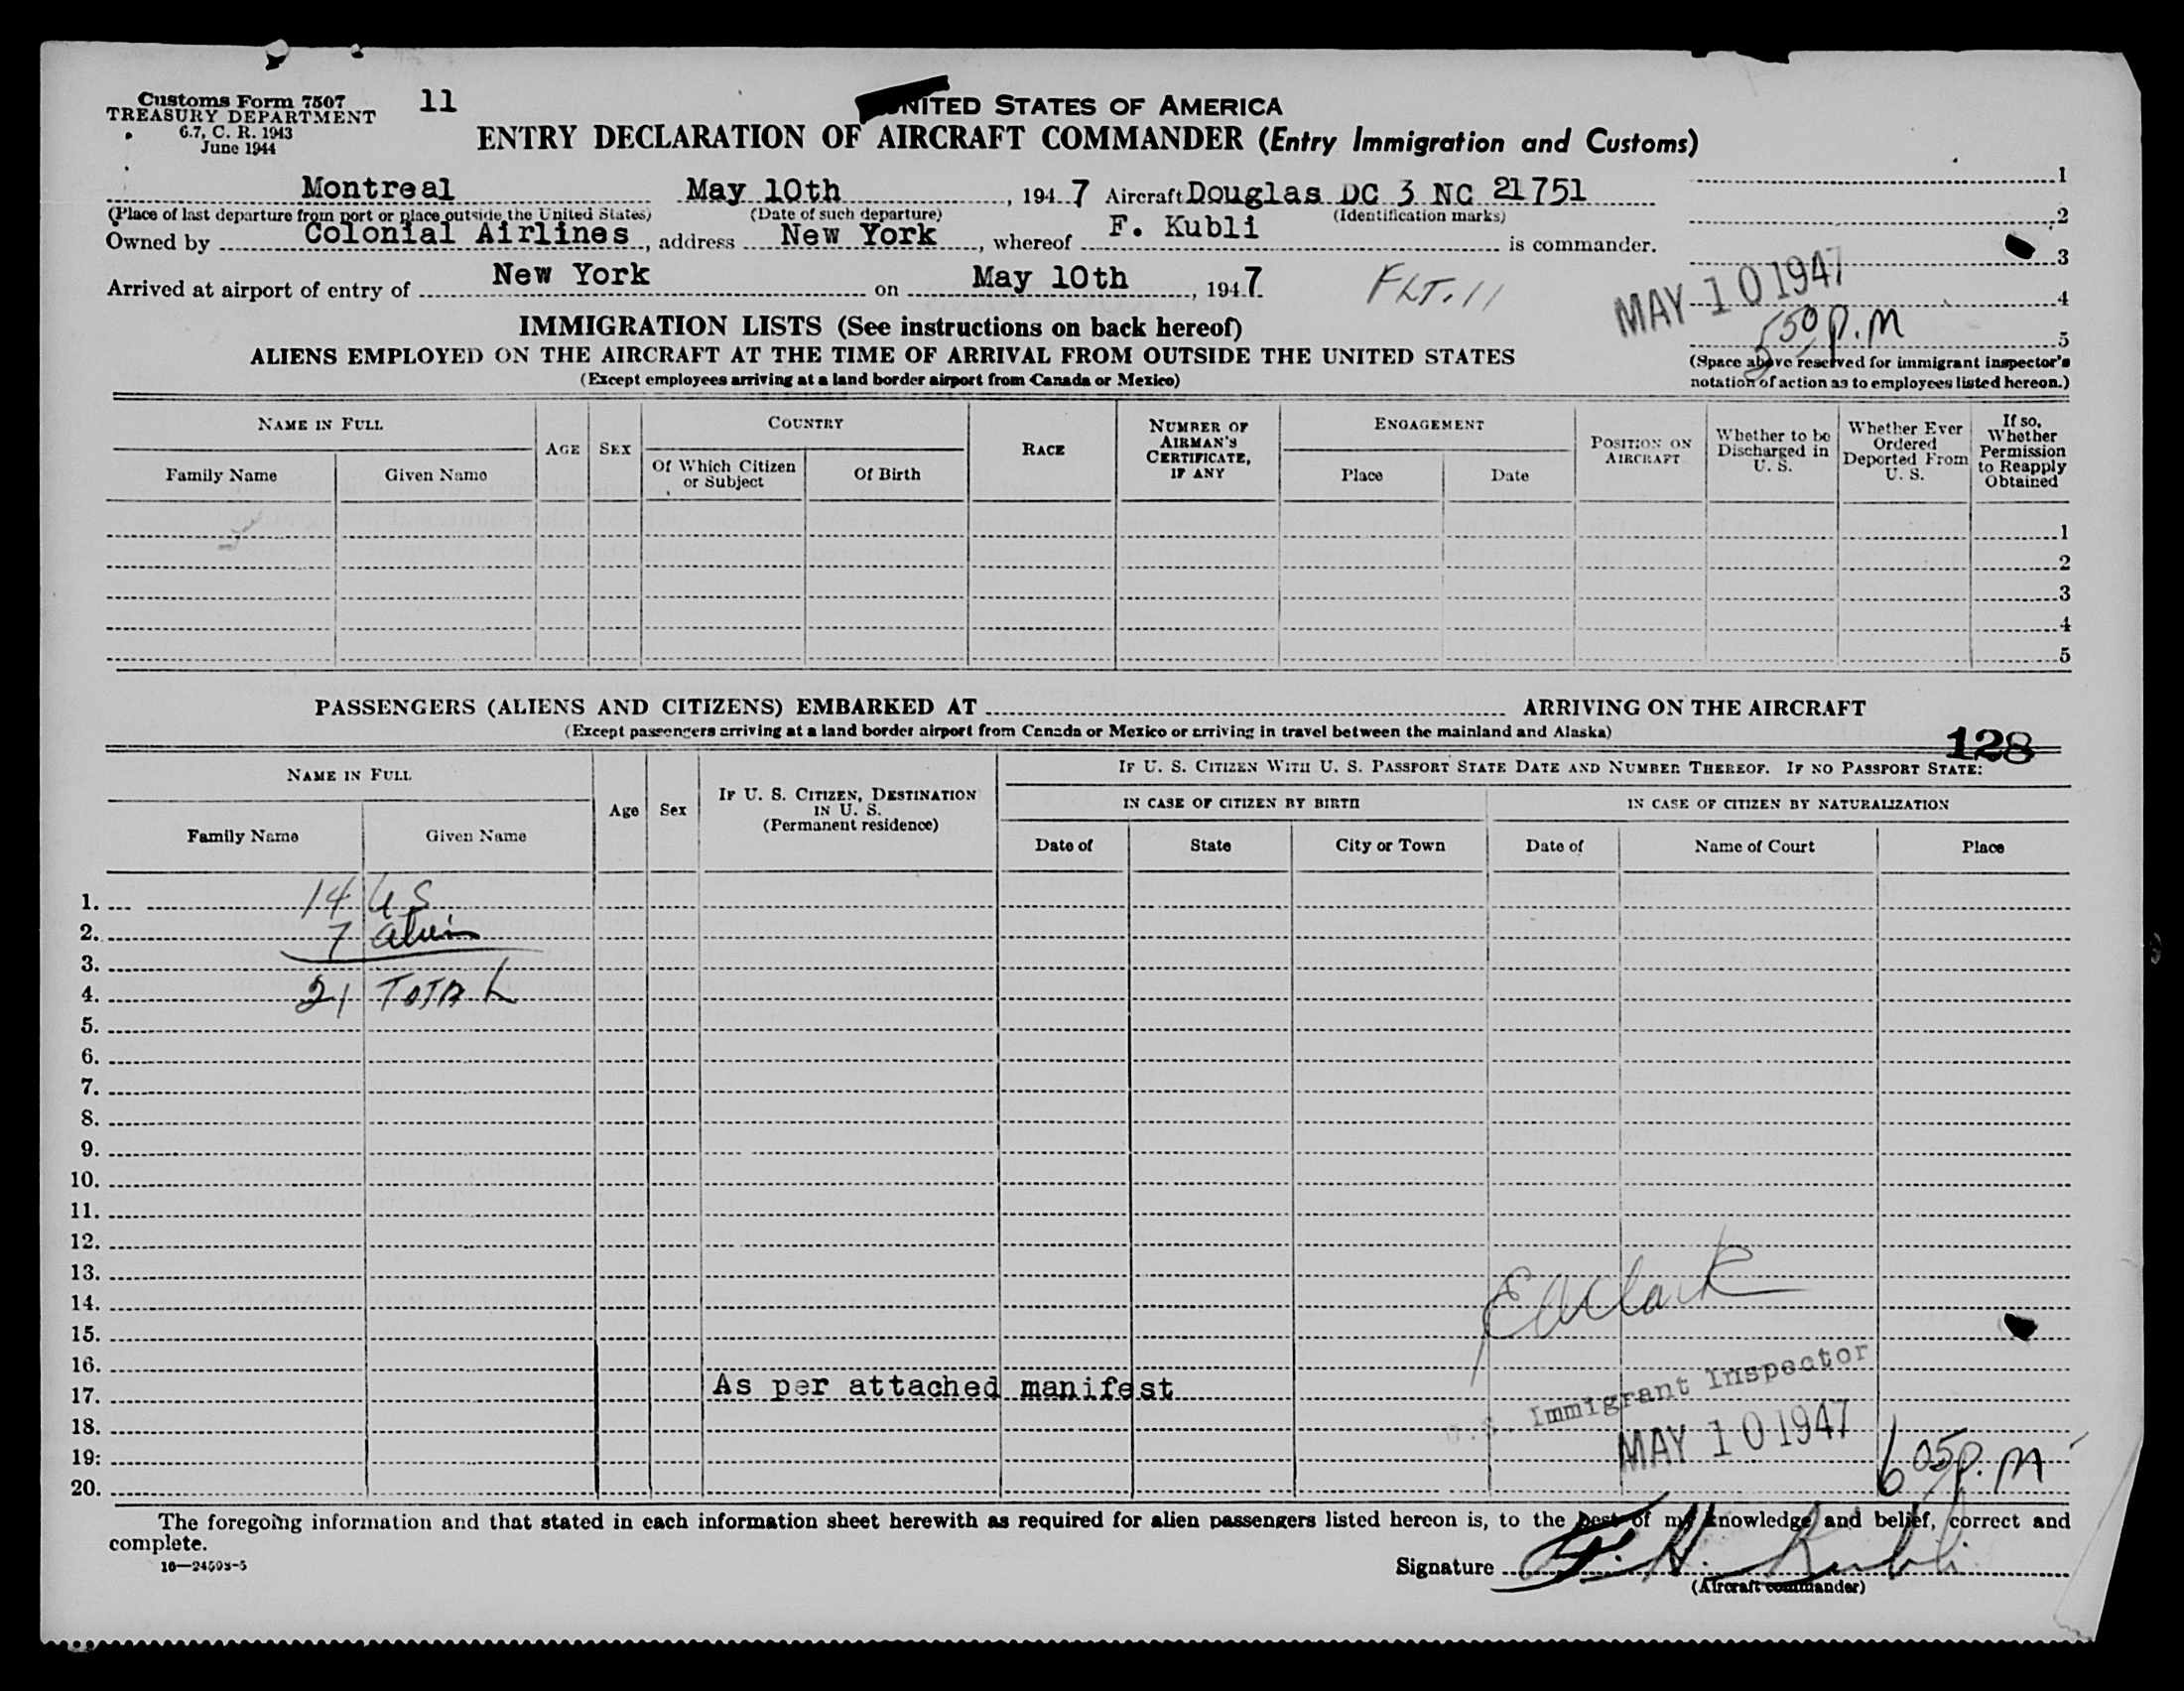 Customs Form 7507
TREASURY DEPARTMENT
6.7, C. R. 1943
June 1944
11
UNITED STATES OF AMERICA
ENTRY DECLARATION OF AIRCRAFT COMMANDER (Entry Immigration and Customs)
Montreal May 10th, 1947 Aircraft Douglas DC 3 NC 21751
(Place of last departure from port or place outside the United States) (Date of such departure) (Identification marks)
Owned by Colonial Airlines, address New York, whereof F. Kubli is commander.
Arrived at airport of entry of New York on May 10th, 1947
FLT. 11
1
2
3
4
5
MAY 10 1947
5 50 P.M
(Space above reserved for immigrant inspector's
notation of action as to employees listed hereon.)
IMMIGRATION LISTS (See instructions on back hereof)
ALIENS EMPLOYED ON THE AIRCRAFT AT THE TIME OF ARRIVAL FROM OUTSIDE THE UNITED STATES
(Except employees arriving at a land border airport from Canada or Mexico)
NAME IN FULL
Family Name
Given Name
AGE
SEX
COUNTRY
Of Which Citizen or Subject
Of Birth
RACE
NUMBER OF AIRMAN'S CERTIFICATE, IF ANY
ENGAGEMENT
Place
Date
POSITION ON AIRCRAFT
Whether to be Discharged in U. S.
Whether Ever Ordered Deported From U. S.
If so, Whether Permission to Reapply Obtained
1
2
3
4
5
PASSENGERS (ALIENS AND CITIZENS) EMBARKED AT ARRIVING ON THE AIRCRAFT
(Except passengers arriving at a land border airport from Canada or Mexico or arriving in travel between the mainland and Alaska)
128
NAME IN FULL
Family Name
Given Name
Age
Sex
IF U. S. CITIZEN, DESTINATION IN U. S.
(Permanent residence)
IF U. S. CITIZEN WITH U. S. PASSPORT STATE DATE AND NUMBER THEREOF. IF NO PASSPORT STATE:
IN CASE OF CITIZEN BY BIRTH
IN CASE OF CITIZEN BY NATURALIZATION
Date of
State
City or Town
Date of
Name of Court
Place
1. 14 US
2. 7 alien
3.
4. 21 TOTAL
5.
6.
7.
8.
9.
10.
11.
12.
13.
14.
15.
16.
17. As per attached manifest
18.
19:
20.
E A Clark
U.S. Immigrant Inspector
MAY 10 1947
6 05 P.M
The foregoing information and that stated in each information sheet herewith as required for alien passengers listed hereon is, to the best of my knowledge and belief, correct and
complete.
16—24598-5
Signature F. H. Kubli
(Aircraft commander)